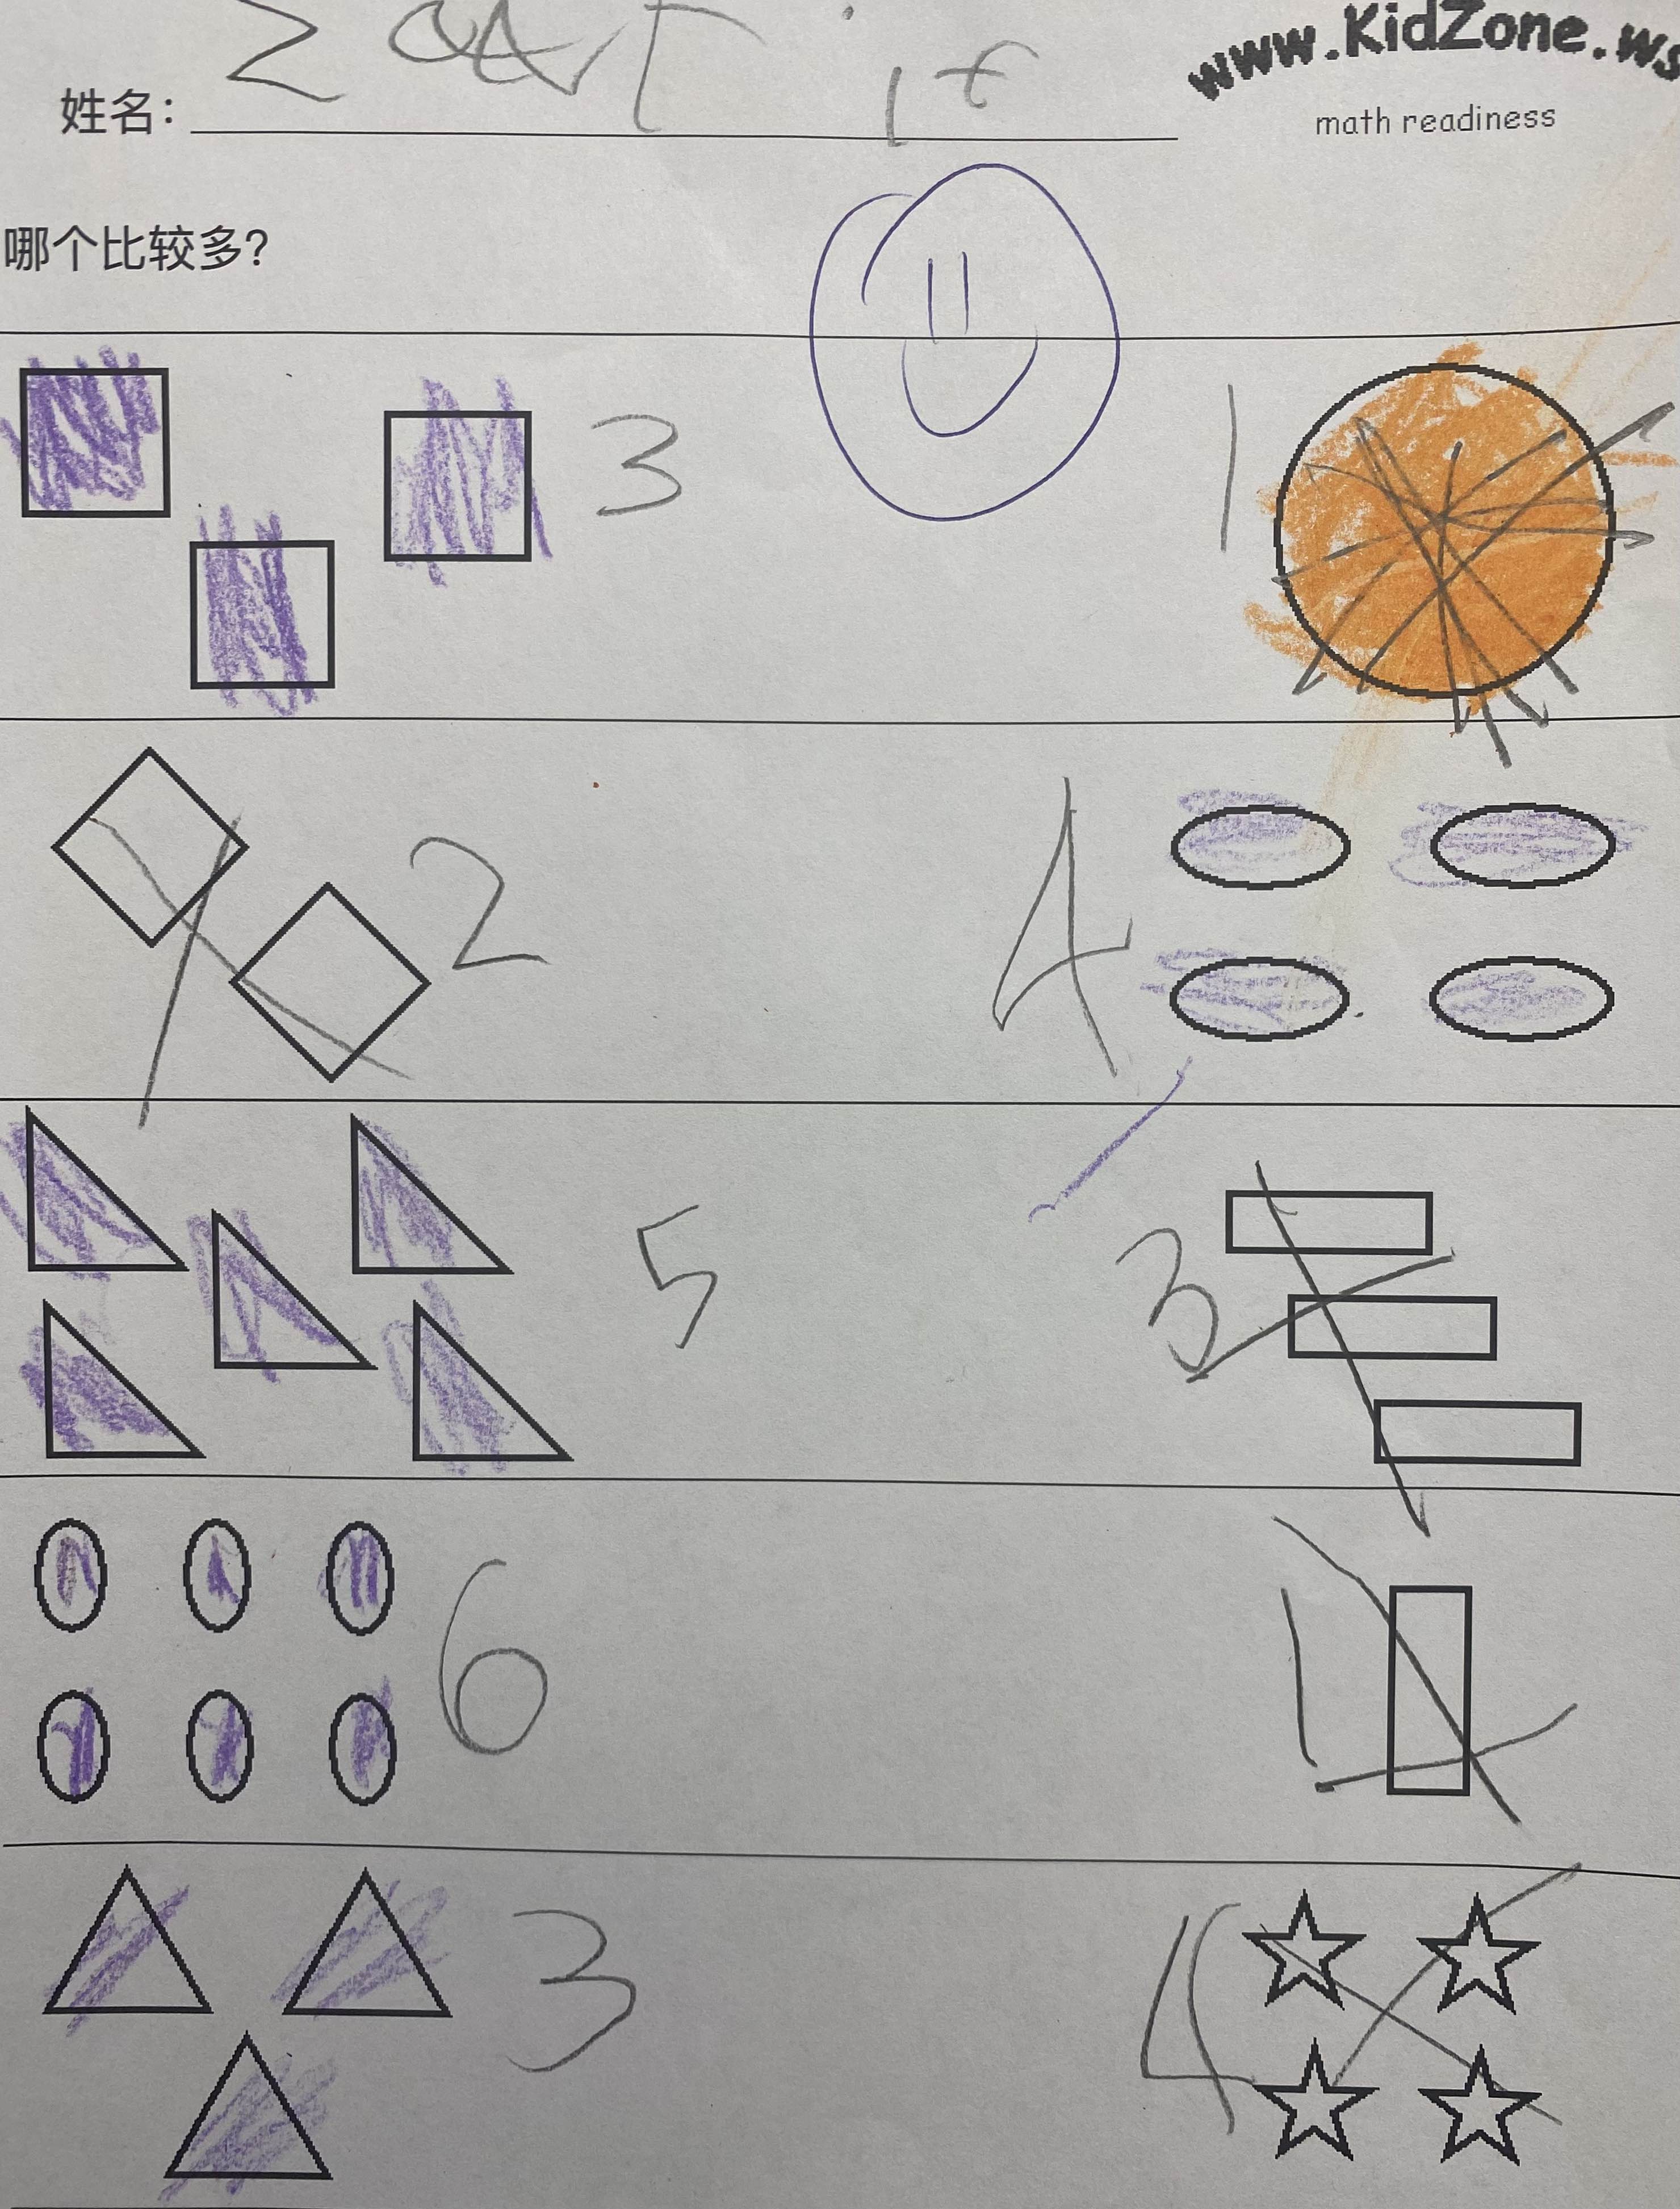 www.KidZone.ws
姓名：
math readiness
哪个比较多？
3 1
2 4
5 3
6 1
3 4